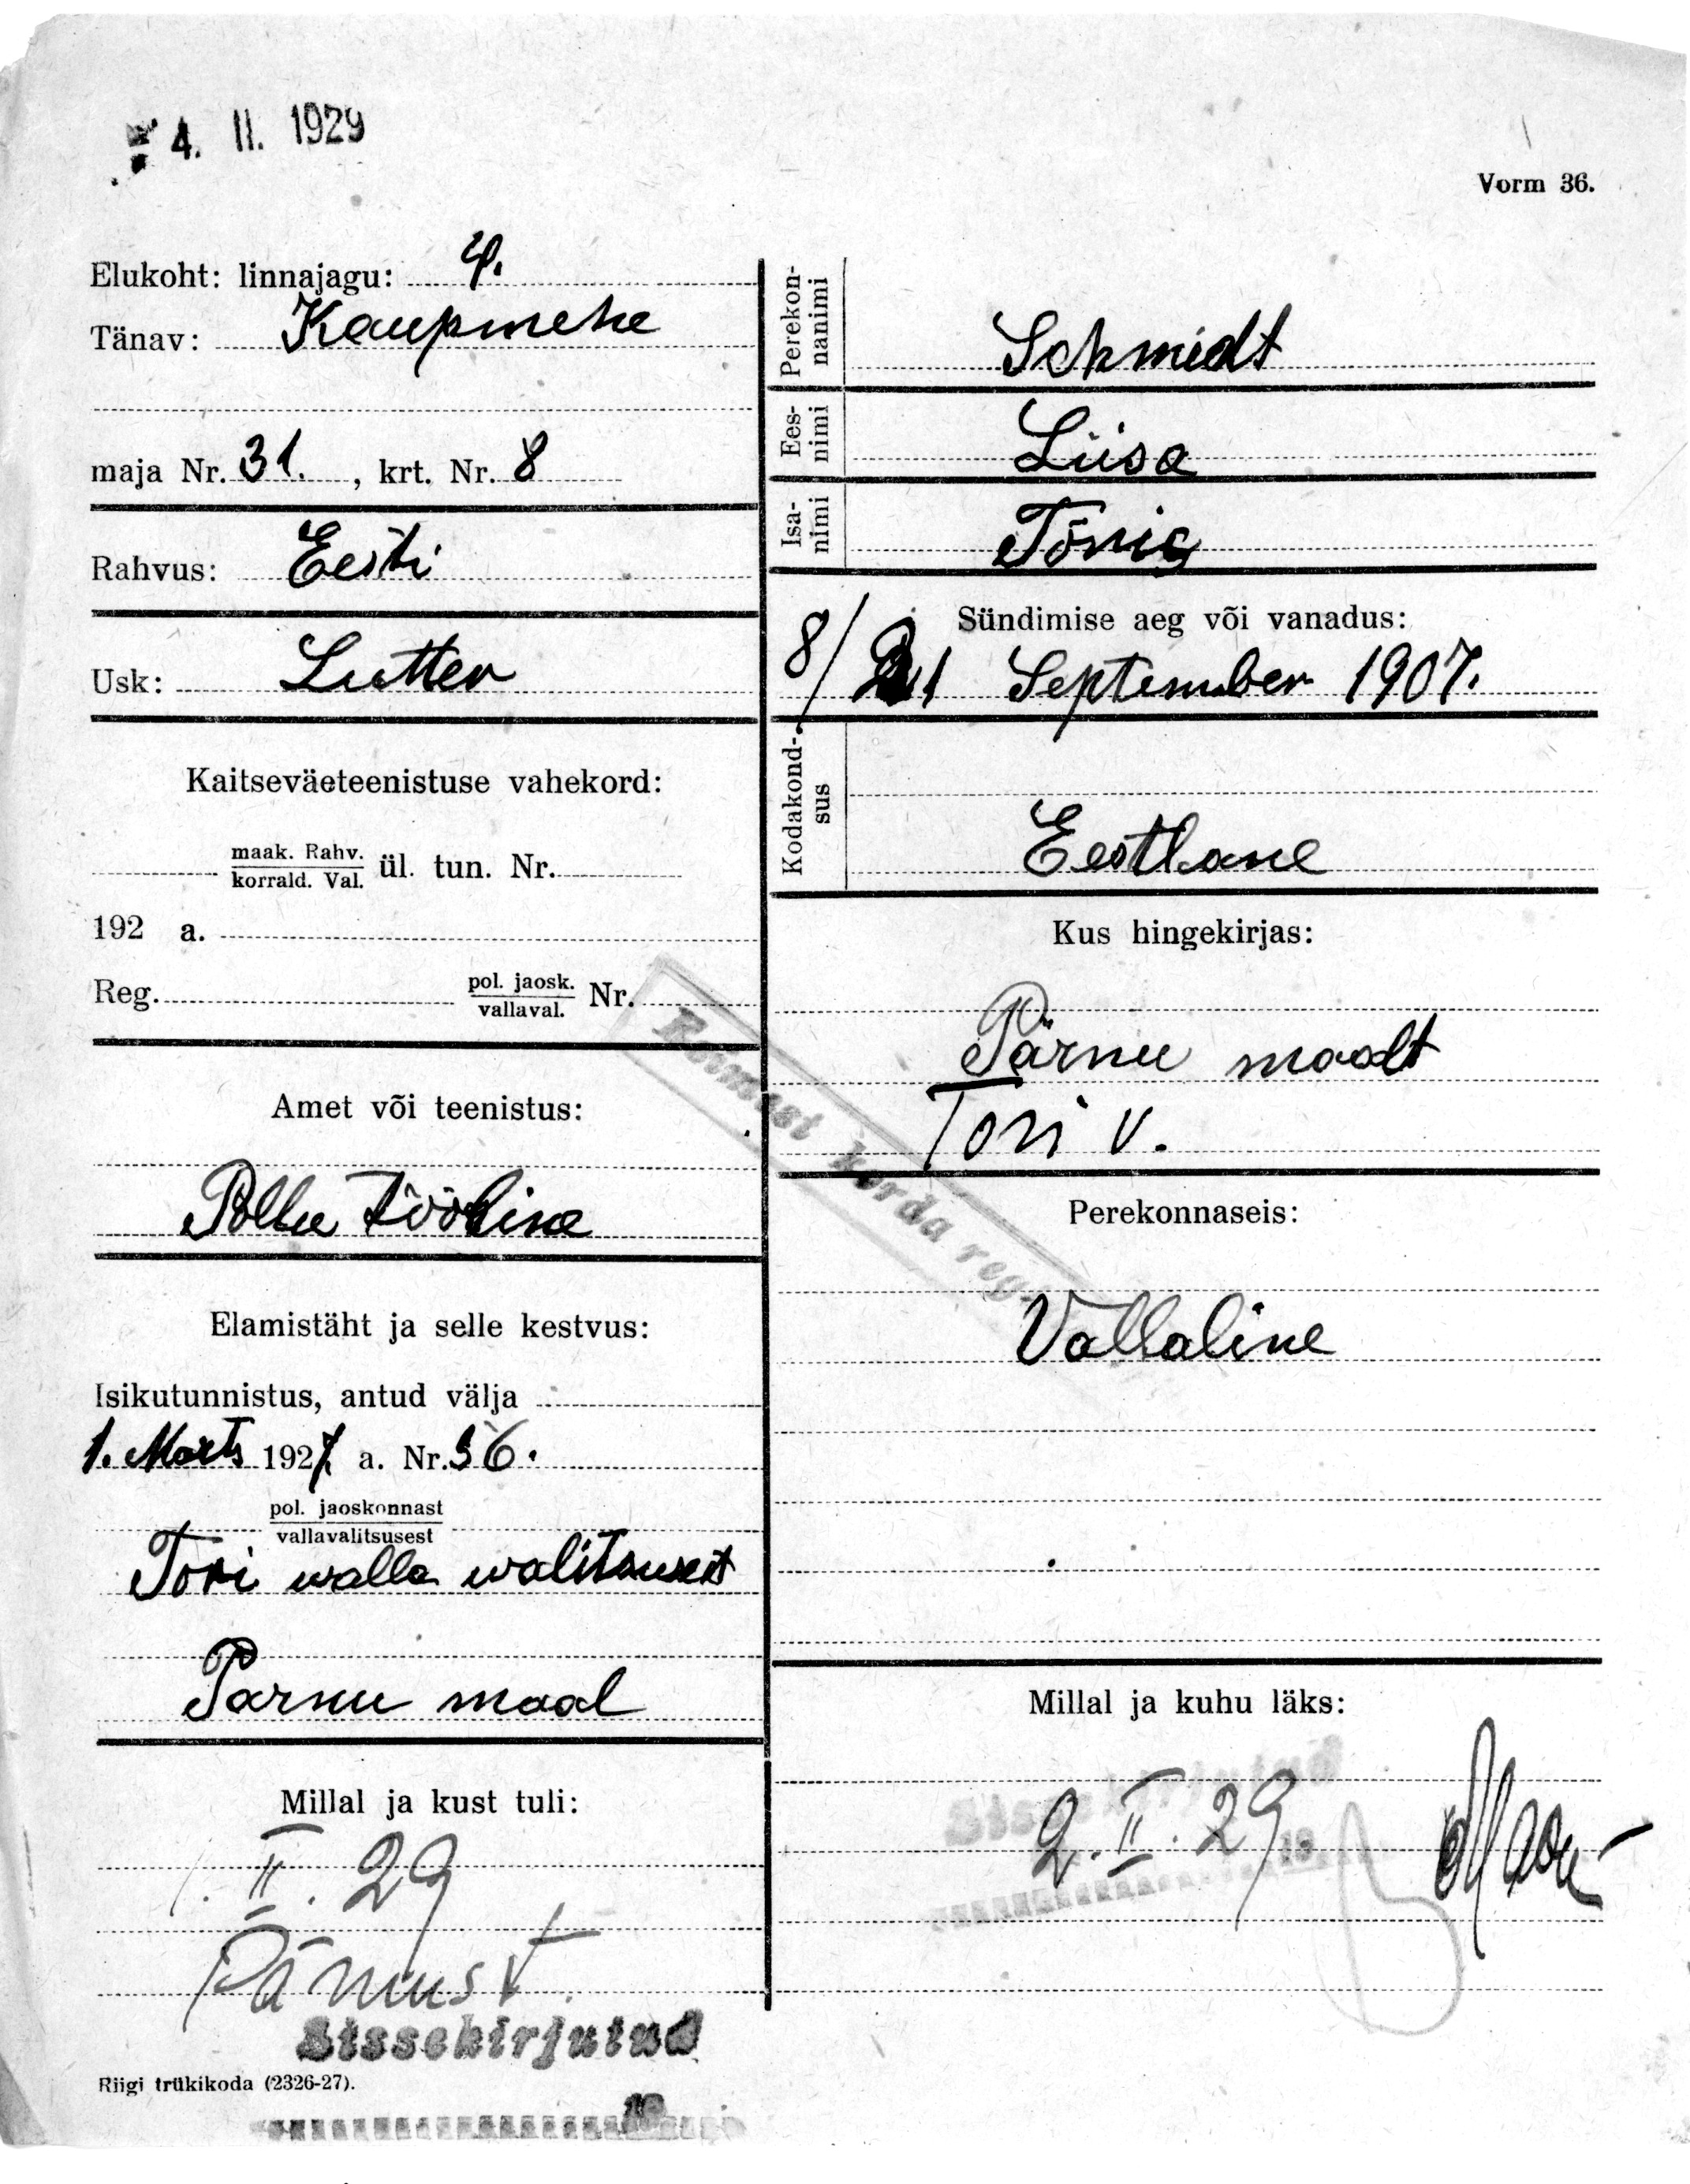 4. II. 1929
Vorm 36.
Elukoht: linnajagu: 4.
Tänav: Kaupmehe
maja Nr. 31. , krt. Nr. 8
Rahvus: Eesti
Usk: Lutter
Kaitseväeteenistuse vahekord:
maak. Rahv.
korrald. Val. ül. tun. Nr.
192 a.
Reg. pol. jaosk.
vallaval. Nr.
Amet või teenistus:
Põllu tööline
Elamistäht ja selle kestvus:
Isikutunnistus, antud välja
1. Märts 1927. a. Nr. 36.
pol. jaoskonnast
vallavalitsusest
Tori walla walitsusest
Pärnu maal
Millal ja kust tuli:
1. II. 29
Pärnust.
Sissekirjutud
19
Riigi trükikoda (2326-27).
Perekon-
nanimi
Schmidt
Ees-
nimi
Liisa
Isa-
nimi
Tõnis
Sündimise aeg või vanadus:
8/21 September 1907.
Kodakond-
sus
Eestlane
Kus hingekirjas:
Pärnu maalt
Tori v.
Esimest korda reg.
Perekonnaseis:
Vallaline
Millal ja kuhu läks:
2. II. 29
19